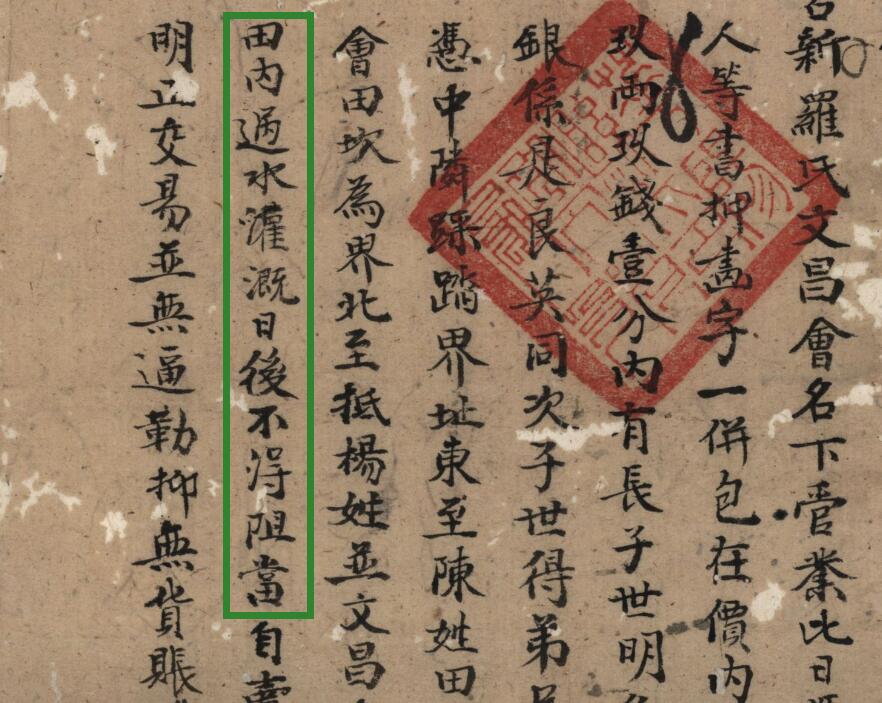 新羅氏文昌會名下管業此日
人等書押畫字一併包在價內
玖兩玖錢壹分內有長子世明
銀係是良英同次子世得弟
憑中隣踩踏界址東至陳姓田
會田坎為界北至抵楊姓並文昌
田內過水灌溉日後不淂阻當自賣
明正交易並無逼勒抑無貨賬